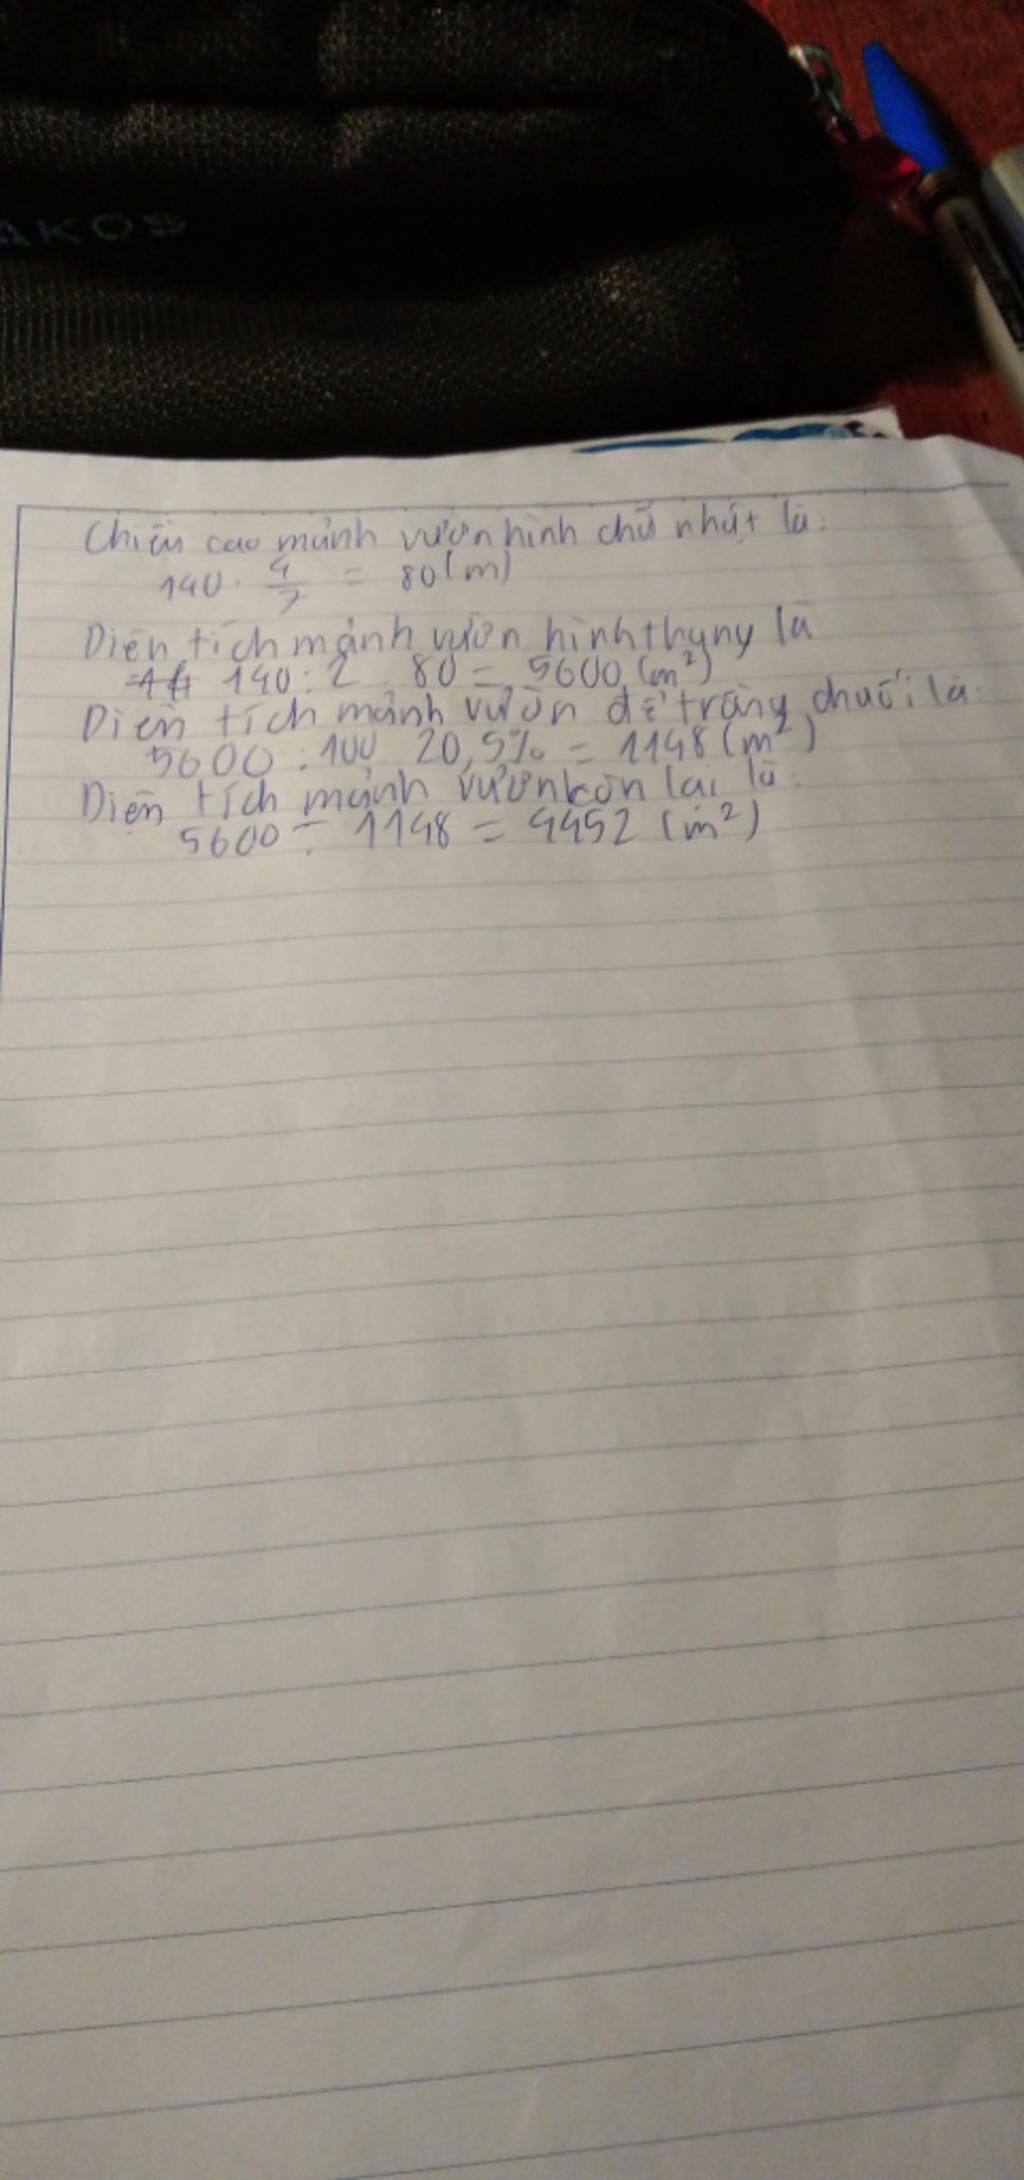 AKOS
Chiều cao mảnh vườn hình chữ nhật là:
140 . 4/7 = 80 (m)
Diện tích mảnh vườn hình thang là
140 : 2 . 80 = 5600 (m²)
Diện tích mảnh vườn để trồng chuối là:
5600 : 100 . 20,5% = 1148 (m²)
Diện tích mảnh vườn kòn lại là:
5600 - 1148 = 4452 (m²)